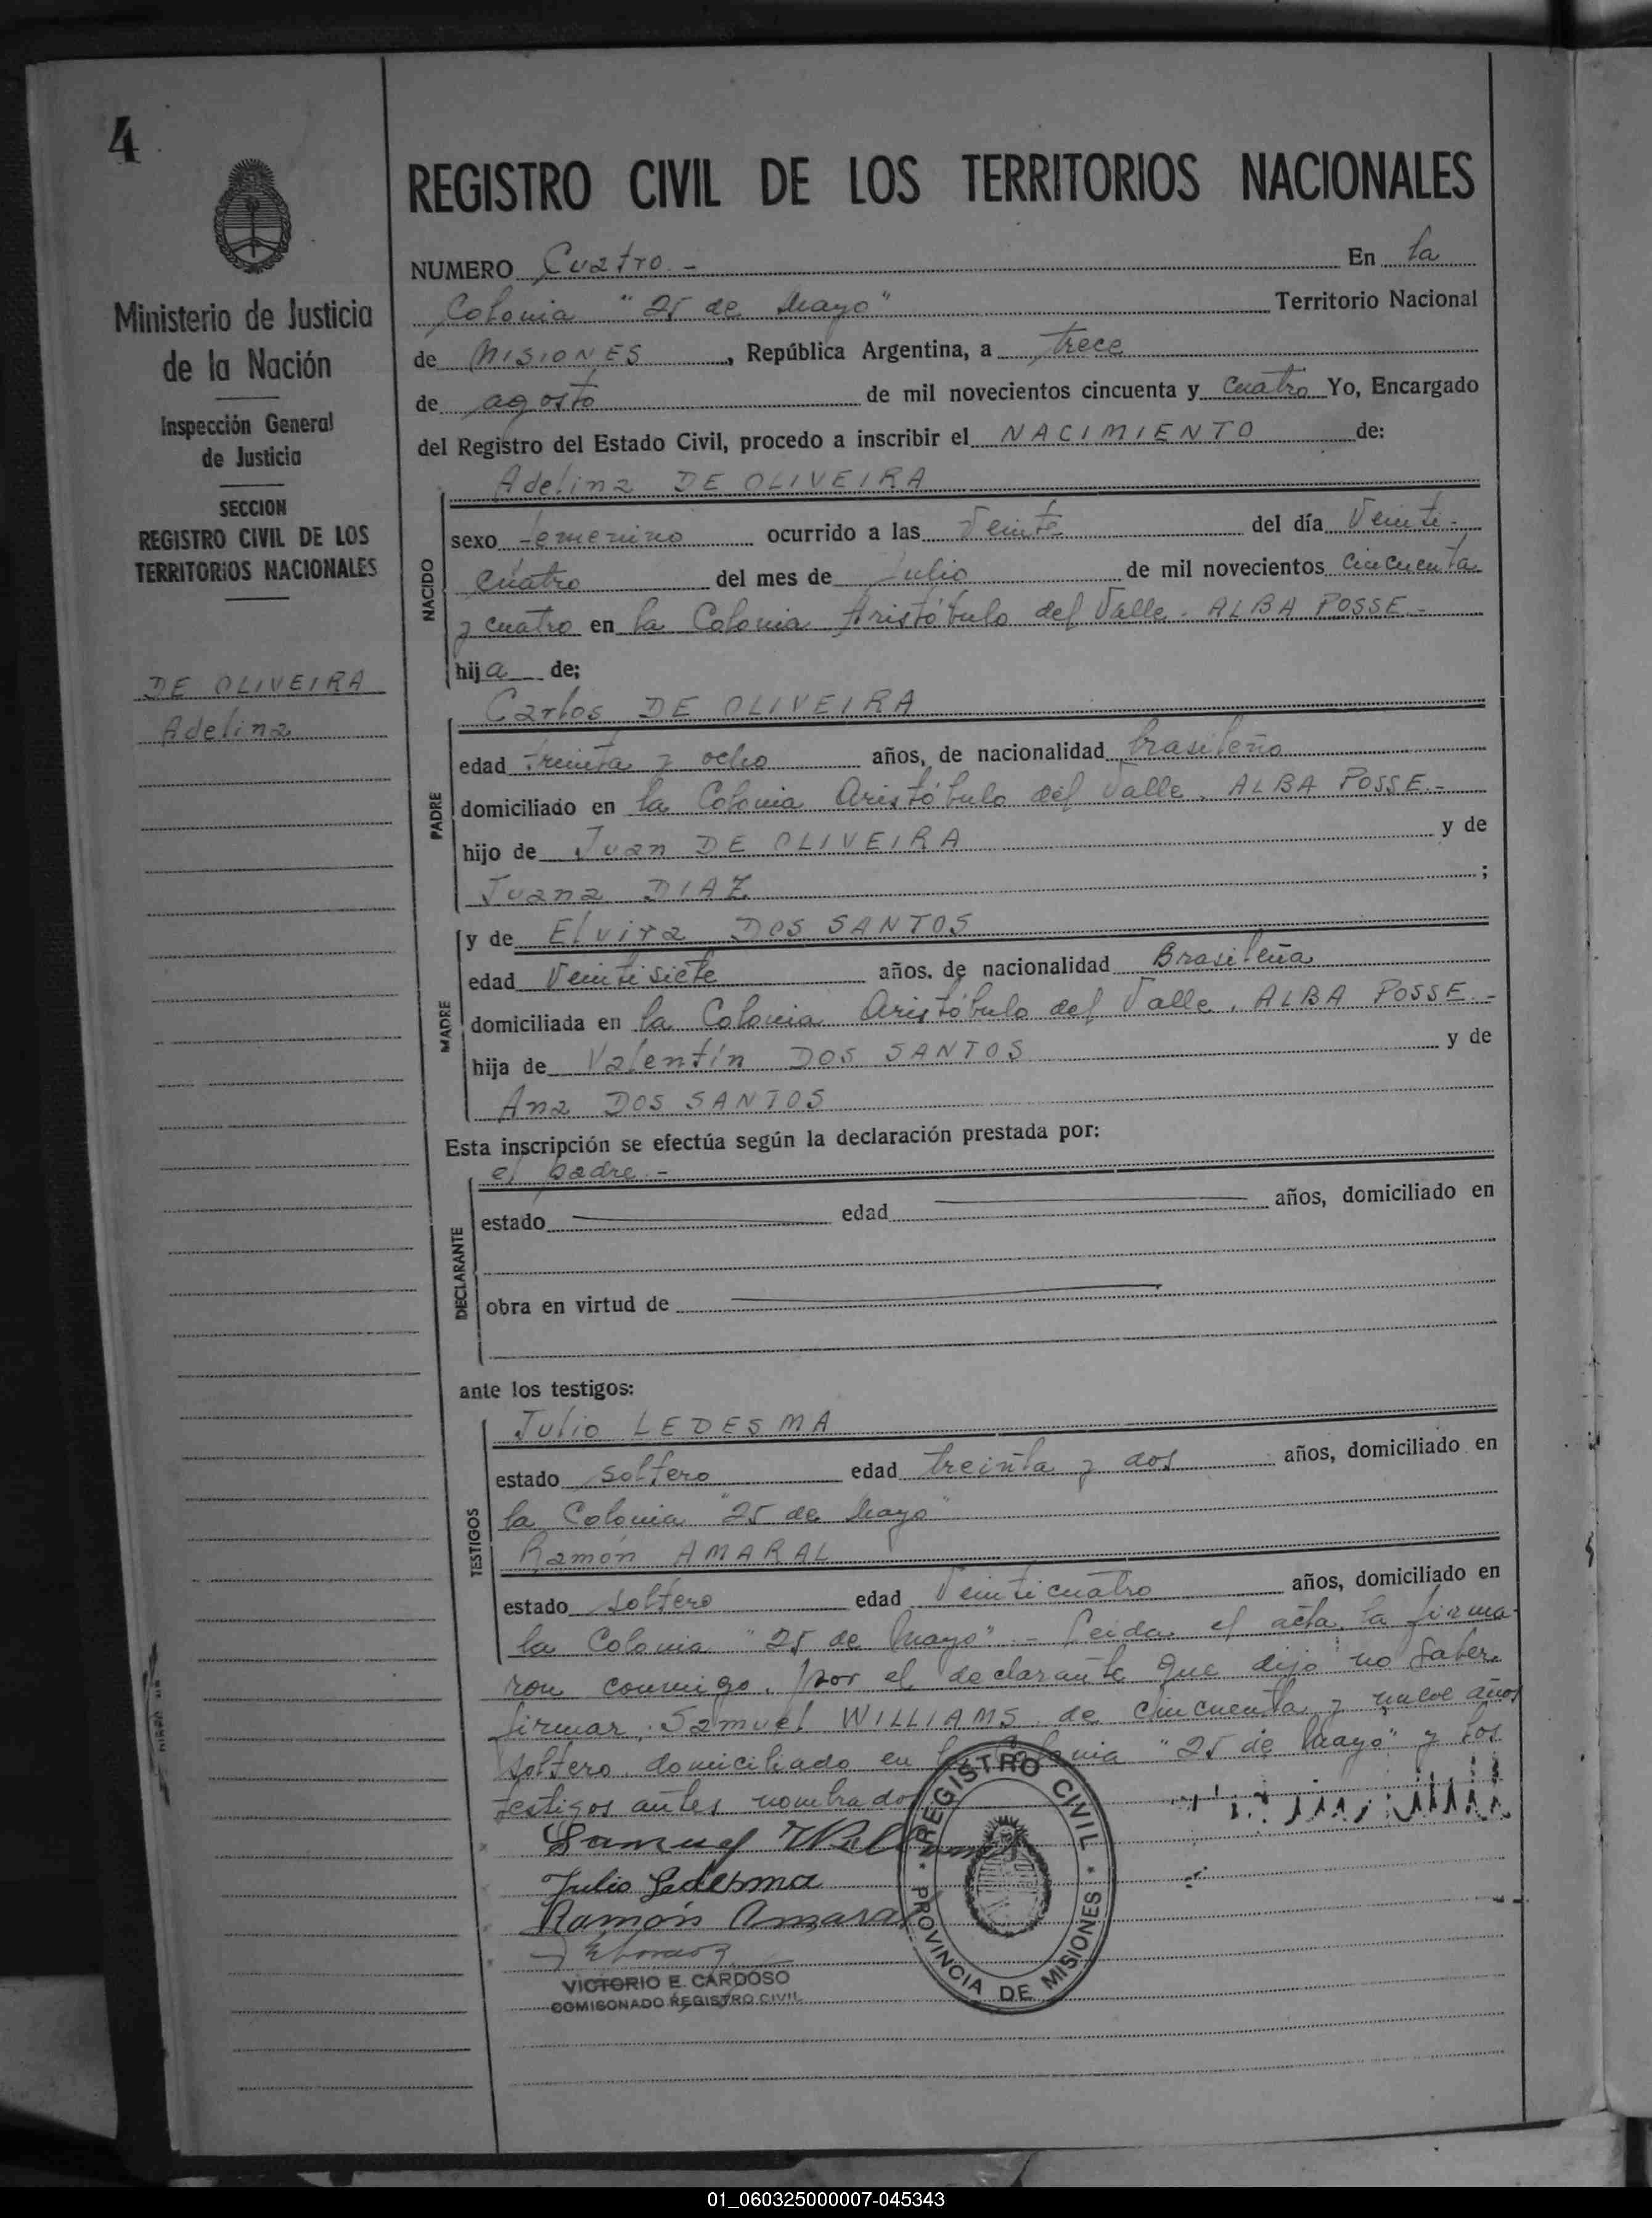 4
Ministerio de Justicia
de la Nación
Inspección General
de Justicia
SECCION
REGISTRO CIVIL DE LOS
TERRITORIOS NACIONALES
DE OLIVEIRA
Adelina
REGISTRO CIVIL DE LOS TERRITORIOS NACIONALES
NUMERO Cuatro.- En la
Colonia "25 de Mayo" Territorio Nacional
de MISIONES, República Argentina, a trece
de agosto de mil novecientos cincuenta y cuatro Yo, Encargado
del Registro del Estado Civil, procedo a inscribir el NACIMIENTO de:
Adelina DE OLIVEIRA
NACIDO
sexo femenino ocurrido a las veinte del día Veinti-
cuatro del mes de Julio de mil novecientos cincuenta
y cuatro en la Colonia Aristóbulo del Valle. ALBA POSSE.-
hija de;
Carlos DE OLIVEIRA
PADRE
edad treinta y ocho años, de nacionalidad brasileño
domiciliado en la Colonia Aristóbulo del Valle. ALBA POSSE.-
hijo de Juan DE OLIVEIRA y de
Juana DIAZ ;
MADRE
y de Elvira DOS SANTOS
edad Veintisiete años. de nacionalidad Brasileña
domiciliada en la Colonia Aristóbulo del Valle. ALBA POSSE.-
hija de Valentín DOS SANTOS y de
Ana DOS SANTOS
Esta inscripción se efectúa según la declaración prestada por:
el padre.-
DECLARANTE
estado edad años, domiciliado en
obra en virtud de
ante los testigos:
TESTIGOS
Julio LEDESMA
estado soltero edad treinta y dos años, domiciliado en
la Colonia "25 de Mayo"
Ramón AMARAL
estado soltero edad Veinticuatro años, domiciliado en
la Colonia "25 de Mayo".- Leída el acta, la firma-
ron conmigo, por el declarante que dijo no saber
firmar, Samuel WILLIAMS, de cincuenta y nueve años
soltero, domiciliado en la Colonia "25 de Mayo" y los
testigos antes nombrados
Samuel Williams
Julio Ledesma
Ramón Amaral
VICTORIO E. CARDOSO
COMISONADO REGISTRO CIVIL
REGISTRO CIVIL
PROVINCIA DE MISIONES
01_060325000007-045343